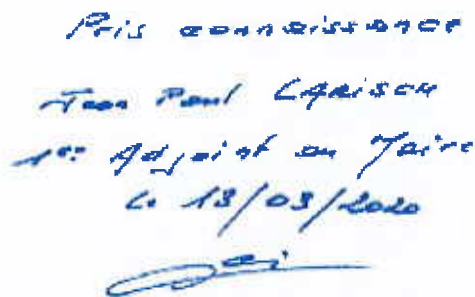 Pris connaissance
Jean Paul LARISCH
1er Adjoint au Maire
Le 13/03/2020